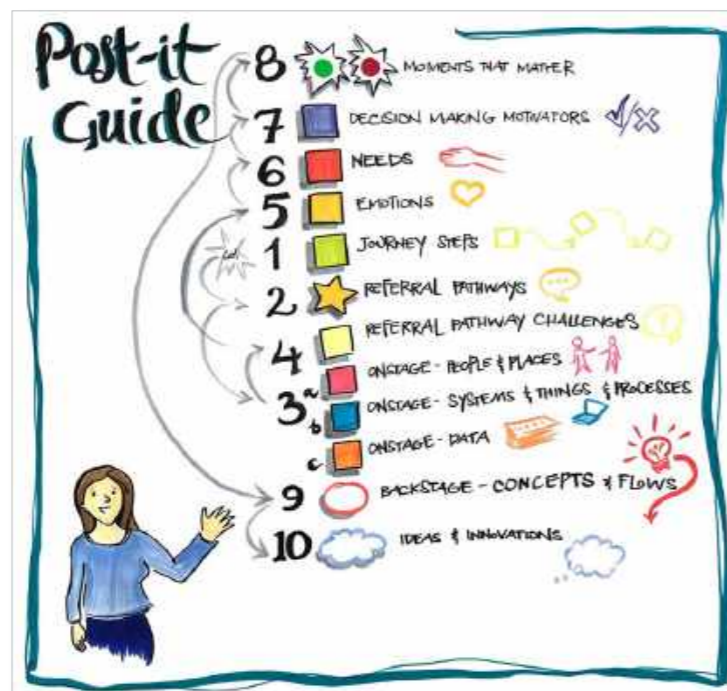 Post-it
Guide
8 MOMENTS THAT MATTER
7 DECISION MAKING MOTIVATORS
6 NEEDS
5 EMOTIONS
1 JOURNEY STEPS
2 REFERRAL PATHWAYS
4 REFERRAL PATHWAY CHALLENGES
3 a ONSTAGE - PEOPLE & PLACES
b ONSTAGE - SYSTEMS & THINGS & PROCESSES
c ONSTAGE - DATA
9 BACKSTAGE - CONCEPTS & FLOWS
10 IDEAS & INNOVATIONS